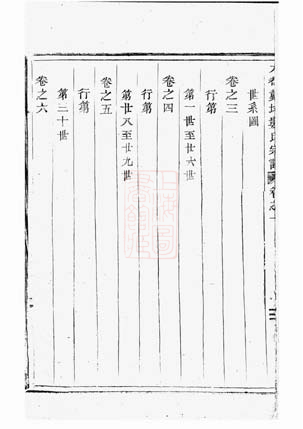 世系圖
卷之三
行第
第一世至廿六世
卷之四
行第
第廿八至廿九世
卷之五
行第
第三十世
卷之六